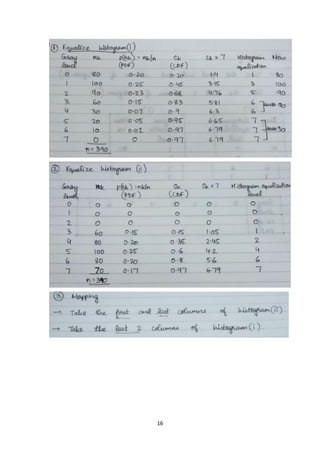 ① Equalize histogram(i)
Gray level nk p(rk) = nk/n (PDF) Sk (CDF) Sk × 7 Histogram equalization New
0 80 0.20 0.20 1.4 1 80
1 100 0.25 0.45 3.15 3 100
2 90 0.23 0.68 4.76 5 90
3 60 0.15 0.83 5.81 6
4 30 0.07 0.9 6.3 6 90
5 20 0.05 0.95 6.65 7
6 10 0.02 0.97 6.79 7 30
7 0 0 0.97 6.79 7
n = 390
② Equalize histogram (ii)
Gray level nk p(rk) = nk/n (PDF) Sk (CDF) Sk × 7 Histogram equalization level
0 0 0 0 0 0
1 0 0 0 0 0
2 0 0 0 0 0
3 60 0.15 0.15 1.05 1
4 80 0.20 0.35 2.45 2
5 100 0.25 0.6 4.2 4
6 80 0.20 0.8 5.6 6
7 70 0.17 0.97 6.79 7
n = 390
③ Mapping
→ Take the first and last columns of histogram (ii).
→ Take the last 2 columns of histogram (i).
16